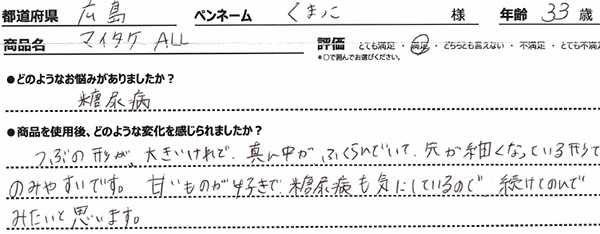 都道府県 広島 ペンネーム くまっこ 様 年齢 33 歳
商品名 マイタケ ALL 評価 とても満足 ・ 満足 ・ どちらとも言えない ・ 不満足 ・ とても不満足
*○で囲んでお選びください。
●どのようなお悩みがありましたか？
糖尿病
●商品を使用後、どのような変化を感じられましたか？
つぶの形が、大きいけれど、真ん中が、ふくらんでいて、先が細くなっている形で
のみやすいです。甘いものが好きで、糖尿病も気にしているので、続けてのんで
みたいと思います。